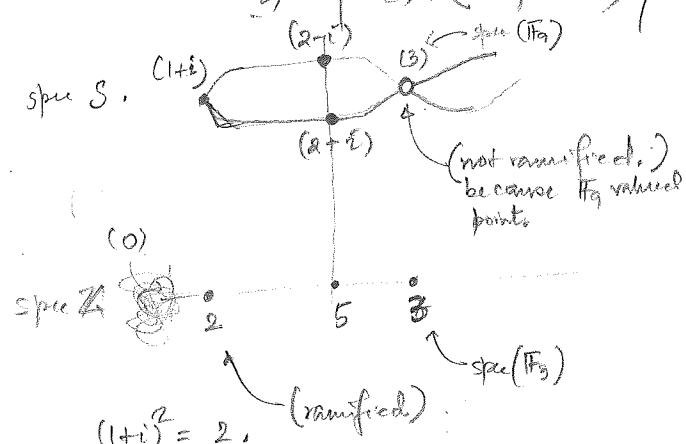 (2-i)
(3)
spec (𝔽₉)
(1+i)
spec S.
(2+i)
(not ramified.)
because 𝔽₉ valued
point.
(0)
spec ℤ
2
5
3
spec(𝔽₃)
(ramified)
(1+i)² = 2.